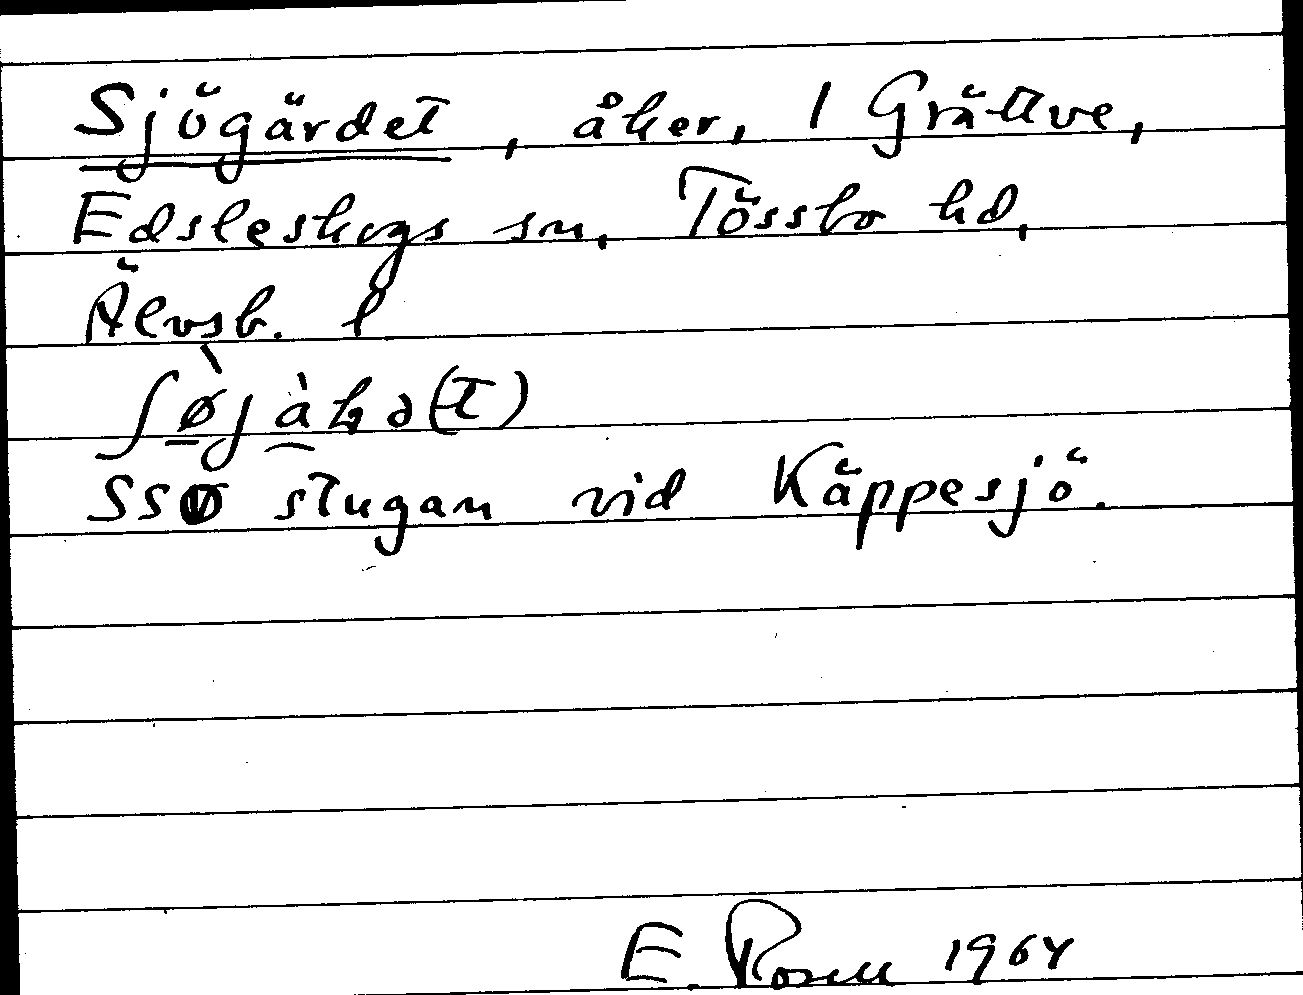 Sjögärdet, åker, 1 Grättve,
Edsleskogs sn, Tössbo hd,
Älvsb. l
SSØ stugan vid Käppesjö.
E. Rosell 1964